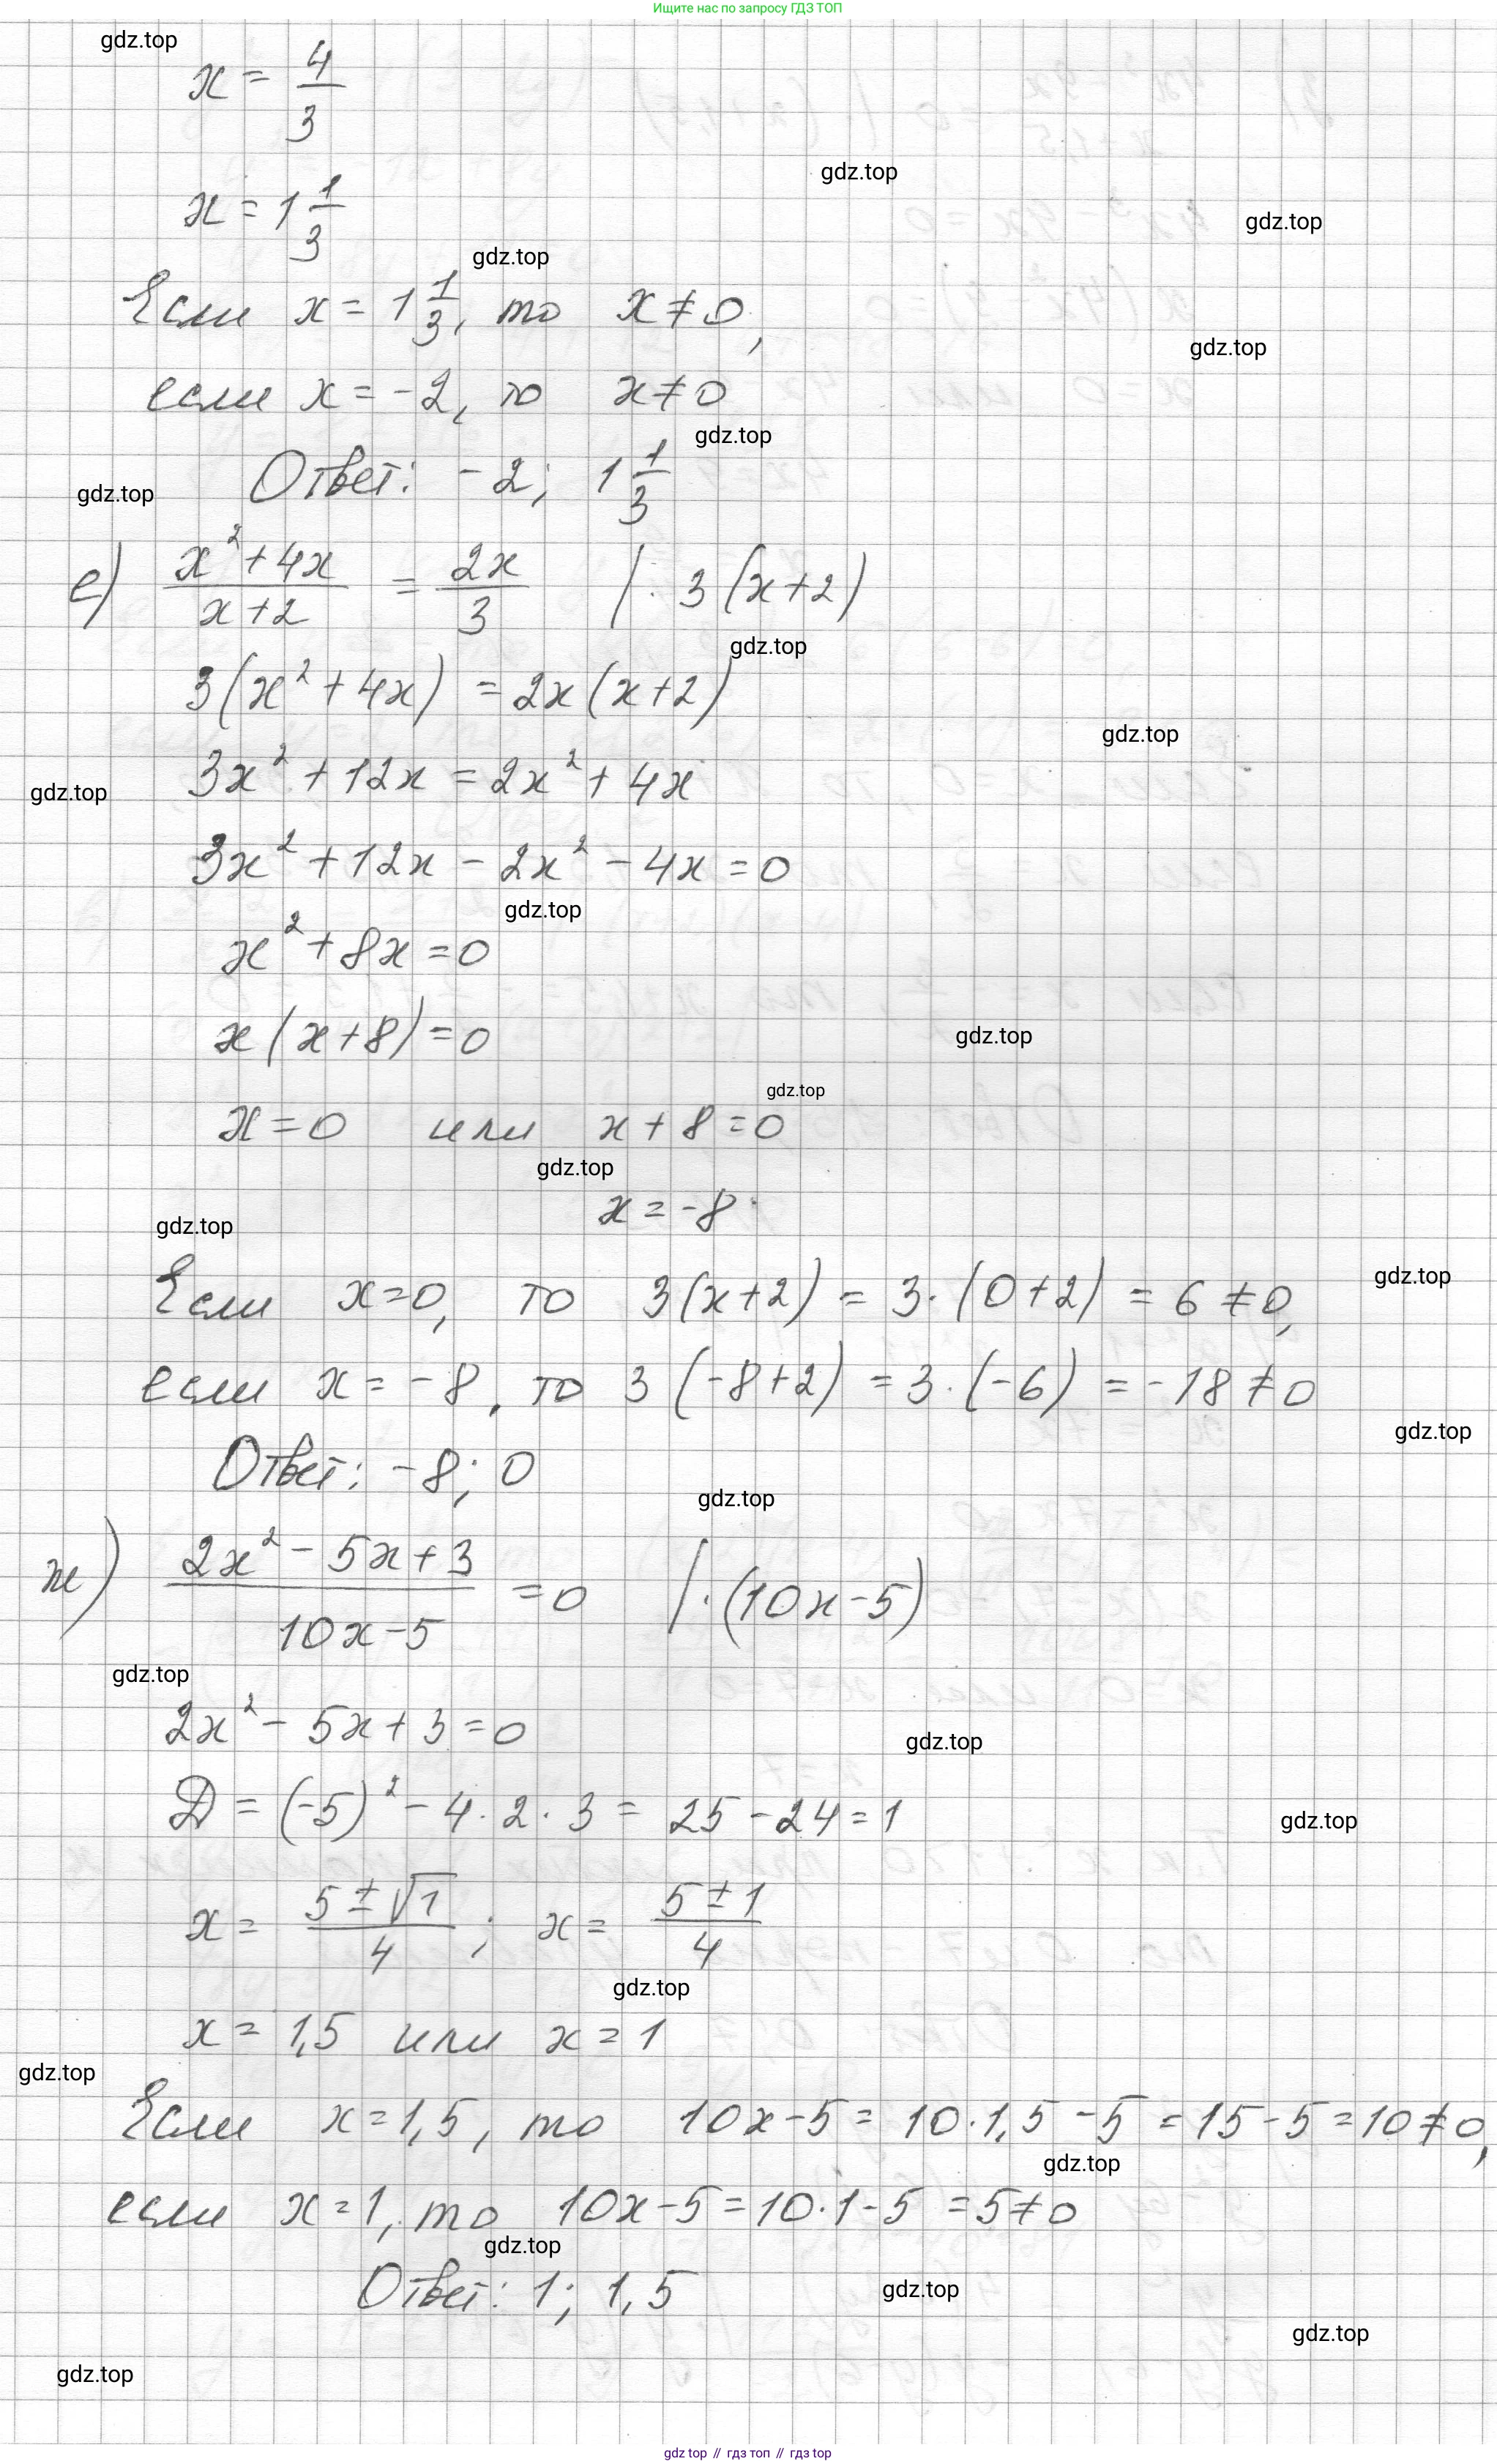 Ищите нас по запросу ГДЗ ТОП
gdz.top
x = 4/3
gdz.top
x = 1 1/3
gdz.top
gdz.top
Если x = 1 1/3, то x ≠ 0,
gdz.top
если x = -2, то x ≠ 0
gdz.top
Ответ: -2; 1 1/3
gdz.top
е) (x² + 4x)/(x + 2) = 2x/3 | · 3(x+2)
gdz.top
3(x² + 4x) = 2x(x+2)
gdz.top
3x² + 12x = 2x² + 4x
gdz.top
3x² + 12x - 2x² - 4x = 0
gdz.top
x² + 8x = 0
x(x+8) = 0
gdz.top
gdz.top
x = 0 или x + 8 = 0
gdz.top
x = -8
gdz.top
gdz.top
Если x = 0, то 3(x+2) = 3 · (0+2) = 6 ≠ 0,
если x = -8, то 3(-8+2) = 3 · (-6) = -18 ≠ 0
gdz.top
Ответ: -8; 0
gdz.top
ж) (2x² - 5x + 3)/(10x - 5) = 0 | · (10x-5)
gdz.top
2x² - 5x + 3 = 0
gdz.top
D = (-5)² - 4 · 2 · 3 = 25 - 24 = 1
gdz.top
x = (5 ± √1)/4 ; x = (5 ± 1)/4
gdz.top
x = 1,5 или x = 1
gdz.top
Если x = 1,5, то 10x - 5 = 10 · 1,5 - 5 = 15 - 5 = 10 ≠ 0,
gdz.top
если x = 1, то 10x - 5 = 10 · 1 - 5 = 5 ≠ 0
gdz.top
Ответ: 1; 1,5
gdz.top
gdz.top
gdz.top
gdz top // гдз топ // гдз top